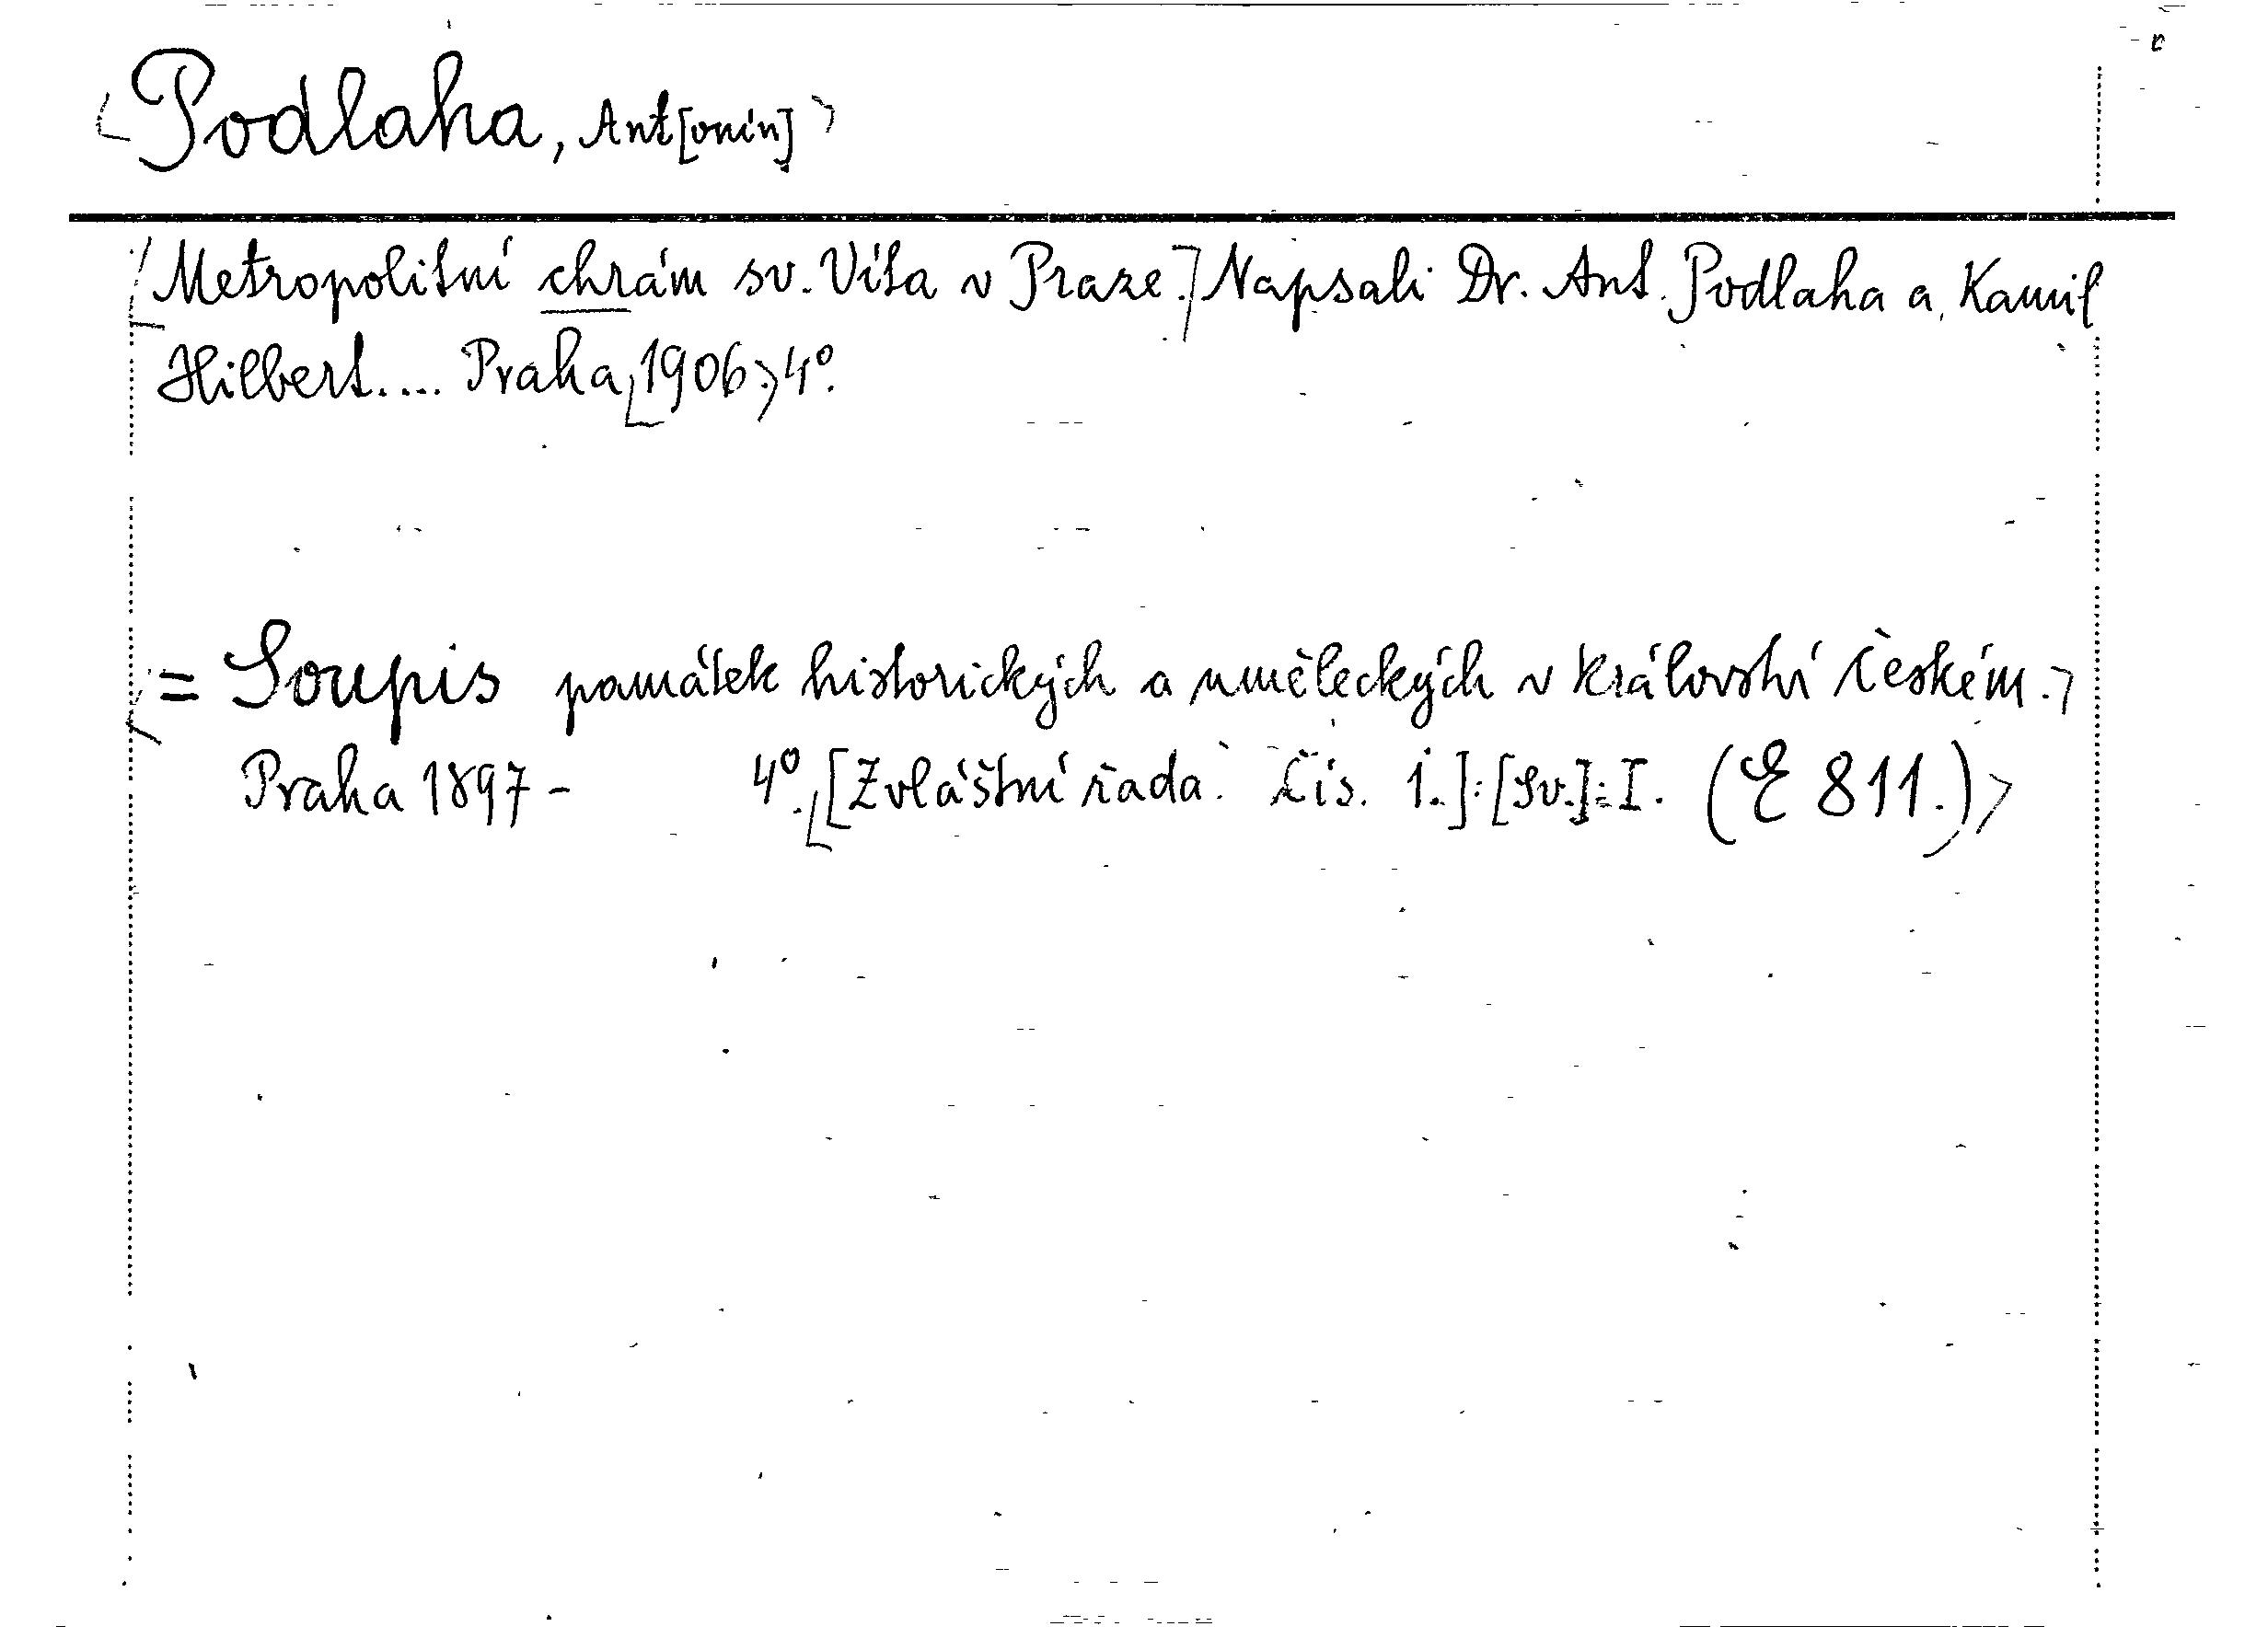 Podlaha, Ant[onín]
Metropolitní chrám sv. Víta v Praze. Napsali Dr. Ant. Podlaha a Kamil
Hilbert.... Praha 1906. 4°.
= Soupis památek historických a uměleckých v království českém.
Praha 1897- 4°. [Zvláštní řada. Čís. 1.]: [Sv.]: I. (E 811.)